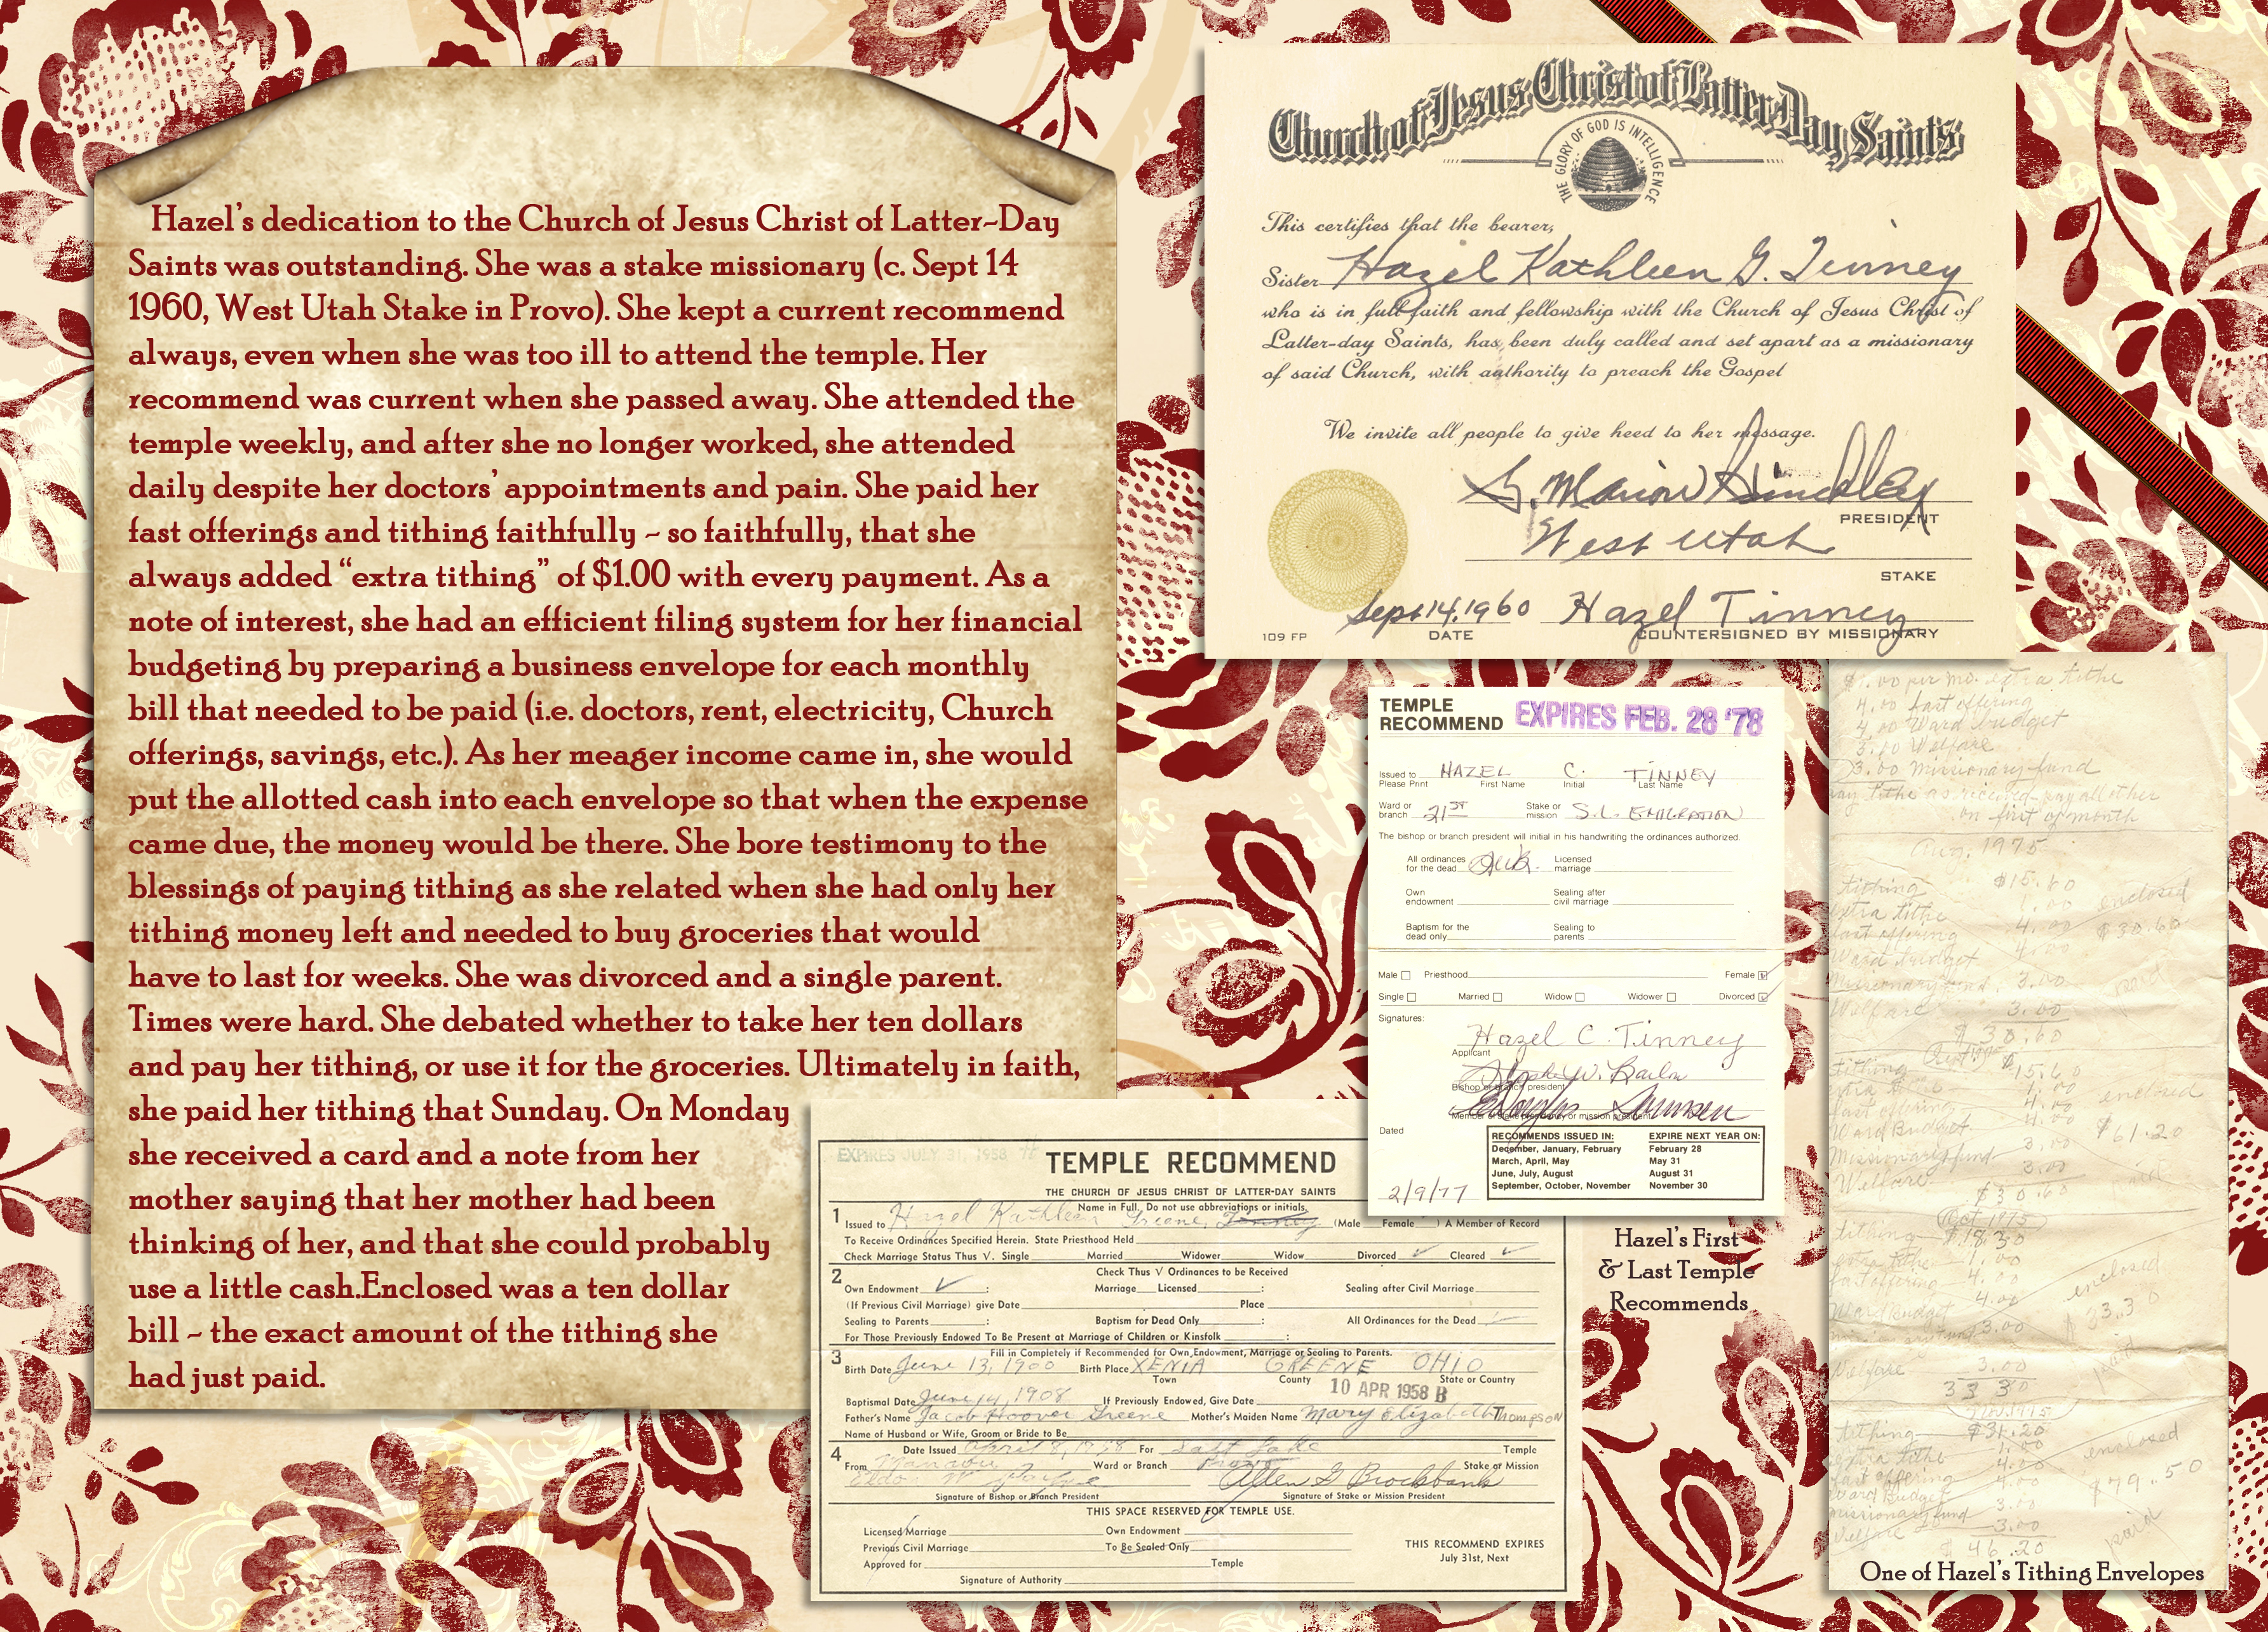 Hazel's dedication to the Church of Jesus Christ of Latter-Day
Saints was outstanding. She was a stake missionary (c. Sept 14
1960, West Utah Stake in Provo). She kept a current recommend
always, even when she was too ill to attend the temple. Her
recommend was current when she passed away. She attended the
temple weekly, and after she no longer worked, she attended
daily despite her doctors' appointments and pain. She paid her
fast offerings and tithing faithfully ~ so faithfully, that she
always added “extra tithing” of $1.00 with every payment. As a
note of interest, she had an efficient filing system for her financial
budgeting by preparing a business envelope for each monthly
bill that needed to be paid (i.e. doctors, rent, electricity, Church
offerings, savings, etc.). As her meager income came in, she would
put the allotted cash into each envelope so that when the expense
came due, the money would be there. She bore testimony to the
blessings of paying tithing as she related when she had only her
tithing money left and needed to buy groceries that would
have to last for weeks. She was divorced and a single parent.
Times were hard. She debated whether to take her ten dollars
and pay her tithing, or use it for the groceries. Ultimately in faith,
she paid her tithing that Sunday. On Monday
she received a card and a note from her
mother saying that her mother had been
thinking of her, and that she could probably
use a little cash.Enclosed was a ten dollar
bill ~ the exact amount of the tithing she
had just paid.
Church of Jesus Christ of Latter Day Saints
THE GLORY OF GOD IS INTELLIGENCE
This certifies that the bearer,
Sister Hazel Kathleen G. Tinney
who is in full faith and fellowship with the Church of Jesus Christ of
Latter-day Saints, has been duly called and set apart as a missionary
of said Church, with authority to preach the Gospel
We invite all people to give heed to her message.
G. Marion Hinckley
PRESIDENT
West Utah
STAKE
Sept.14.1960 Hazel Tinney
109 FP DATE COUNTERSIGNED BY MISSIONARY
TEMPLE
RECOMMEND EXPIRES FEB. 28 '78
Issued to HAZEL C. TINNEY
Please Print First Name Initial Last Name
Ward or branch 21ST Stake or mission S.L. EMIGRATION
The bishop or branch president will initial in his handwriting the ordinances authorized.
All ordinances for the dead Licensed marriage
Own endowment Sealing after civil marriage
Baptism for the dead only Sealing to parents
Male Priesthood Female
Single Married Widow Widower Divorced
Signatures:
Hazel C. Tinney
Applicant
Bishop or branch president
Member of stake presidency or mission president
Dated
2/9/77
RECOMMENDS ISSUED IN: EXPIRE NEXT YEAR ON:
December, January, February February 28
March, April, May May 31
June, July, August August 31
September, October, November November 30
Hazel's First
& Last Temple
Recommends
EXPIRES JULY 31, 1958
TEMPLE RECOMMEND
THE CHURCH OF JESUS CHRIST OF LATTER-DAY SAINTS
Name in Full. Do not use abbreviations or initials.
1 Issued to Hazel Kathleen Greene Tinney (Male Female ) A Member of Record
To Receive Ordinances Specified Herein. State Priesthood Held
Check Marriage Status Thus V. Single Married Widower Widow Divorced Cleared
2 Check Thus V Ordinances to be Received
Own Endowment : Marriage Licensed : Sealing after Civil Marriage
(If Previous Civil Marriage) give Date Place
Sealing to Parents : Baptism for Dead Only : All Ordinances for the Dead
For Those Previously Endowed To Be Present at Marriage of Children or Kinsfolk :
3 Fill in Completely if Recommended for Own Endowment, Marriage or Sealing to Parents.
Birth Date June 13, 1900 Birth Place XENIA GREENE OHIO
Town County State or Country
10 APR 1958 B
Baptismal Date June 14, 1908 If Previously Endowed, Give Date
Father's Name Jacob Hoover Greene Mother's Maiden Name Mary Elizabeth Thompson
Name of Husband or Wife, Groom or Bride to Be
4 Date Issued April 8, 1958 For Salt Lake Temple
From Manavu Ward or Branch Provo Stake or Mission
Allen G Brockbank
Signature of Bishop or Branch President Signature of Stake or Mission President
THIS SPACE RESERVED FOR TEMPLE USE.
Licensed Marriage Own Endowment
Previous Civil Marriage To Be Sealed Only
Approved for Temple
Signature of Authority
THIS RECOMMEND EXPIRES
July 31st, Next
$1.00 per mo. extra tithe
4.00 fast offering
4.00 Ward budget
3.00 Welfare
3.00 missionary fund
pay tithe as received-pay all other
on first of month
Aug. 1975
tithing $15.60
extra tithe 1.00 enclosed
fast offering 4.00 $30.60
Ward budget 4.00
Missionary fund 3.00 paid
Welfare 3.00
$30.60
tithing $15.60
enclosed
Ward Budget 4.00 $61.20
Missionary fund 3.00
Welfare 3.00 paid
$30.60
Oct 1975
tithing $18.30
extra tithe 1.00
fast offering 4.00 enclosed
Ward budget 4.00 $33.30
3.00
Welfare 3.00 paid
33.30
tithing $31.20
extra tithe 1.00 enclosed
fast offering 4.00
Ward Budget 4.00 $79.50
missionary fund 3.00
Welfare 3.00 paid
$46.20
One of Hazel's Tithing Envelopes